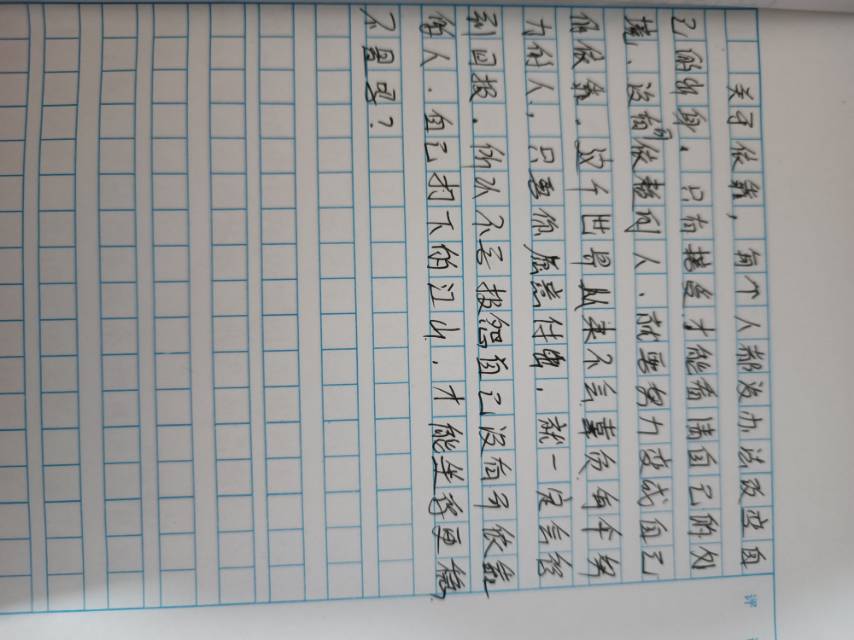 关于依靠，每个人都没办法改变自
己的出身。只有接受才能看清自己的处
境、没有的依靠的人、就要努力变成自己
的依靠。这个世界从来不会辜负每个努
力的人，只要你愿意付出，就一定会得
到回报。所以不要报怨自己没有可依靠
的人．自己打下的江山．才能坐得更稳，
不是吗？
评